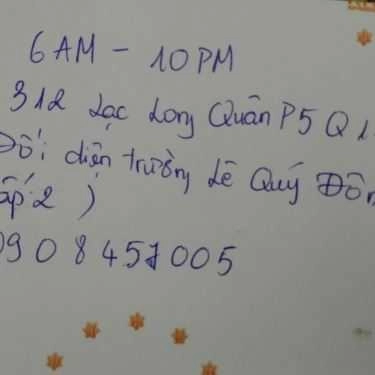 6AM - 10PM
312 Lạc Long Quân P5 Q1
Đối diện trường Lê Quý Đôn
cấp 2 )
0908457005